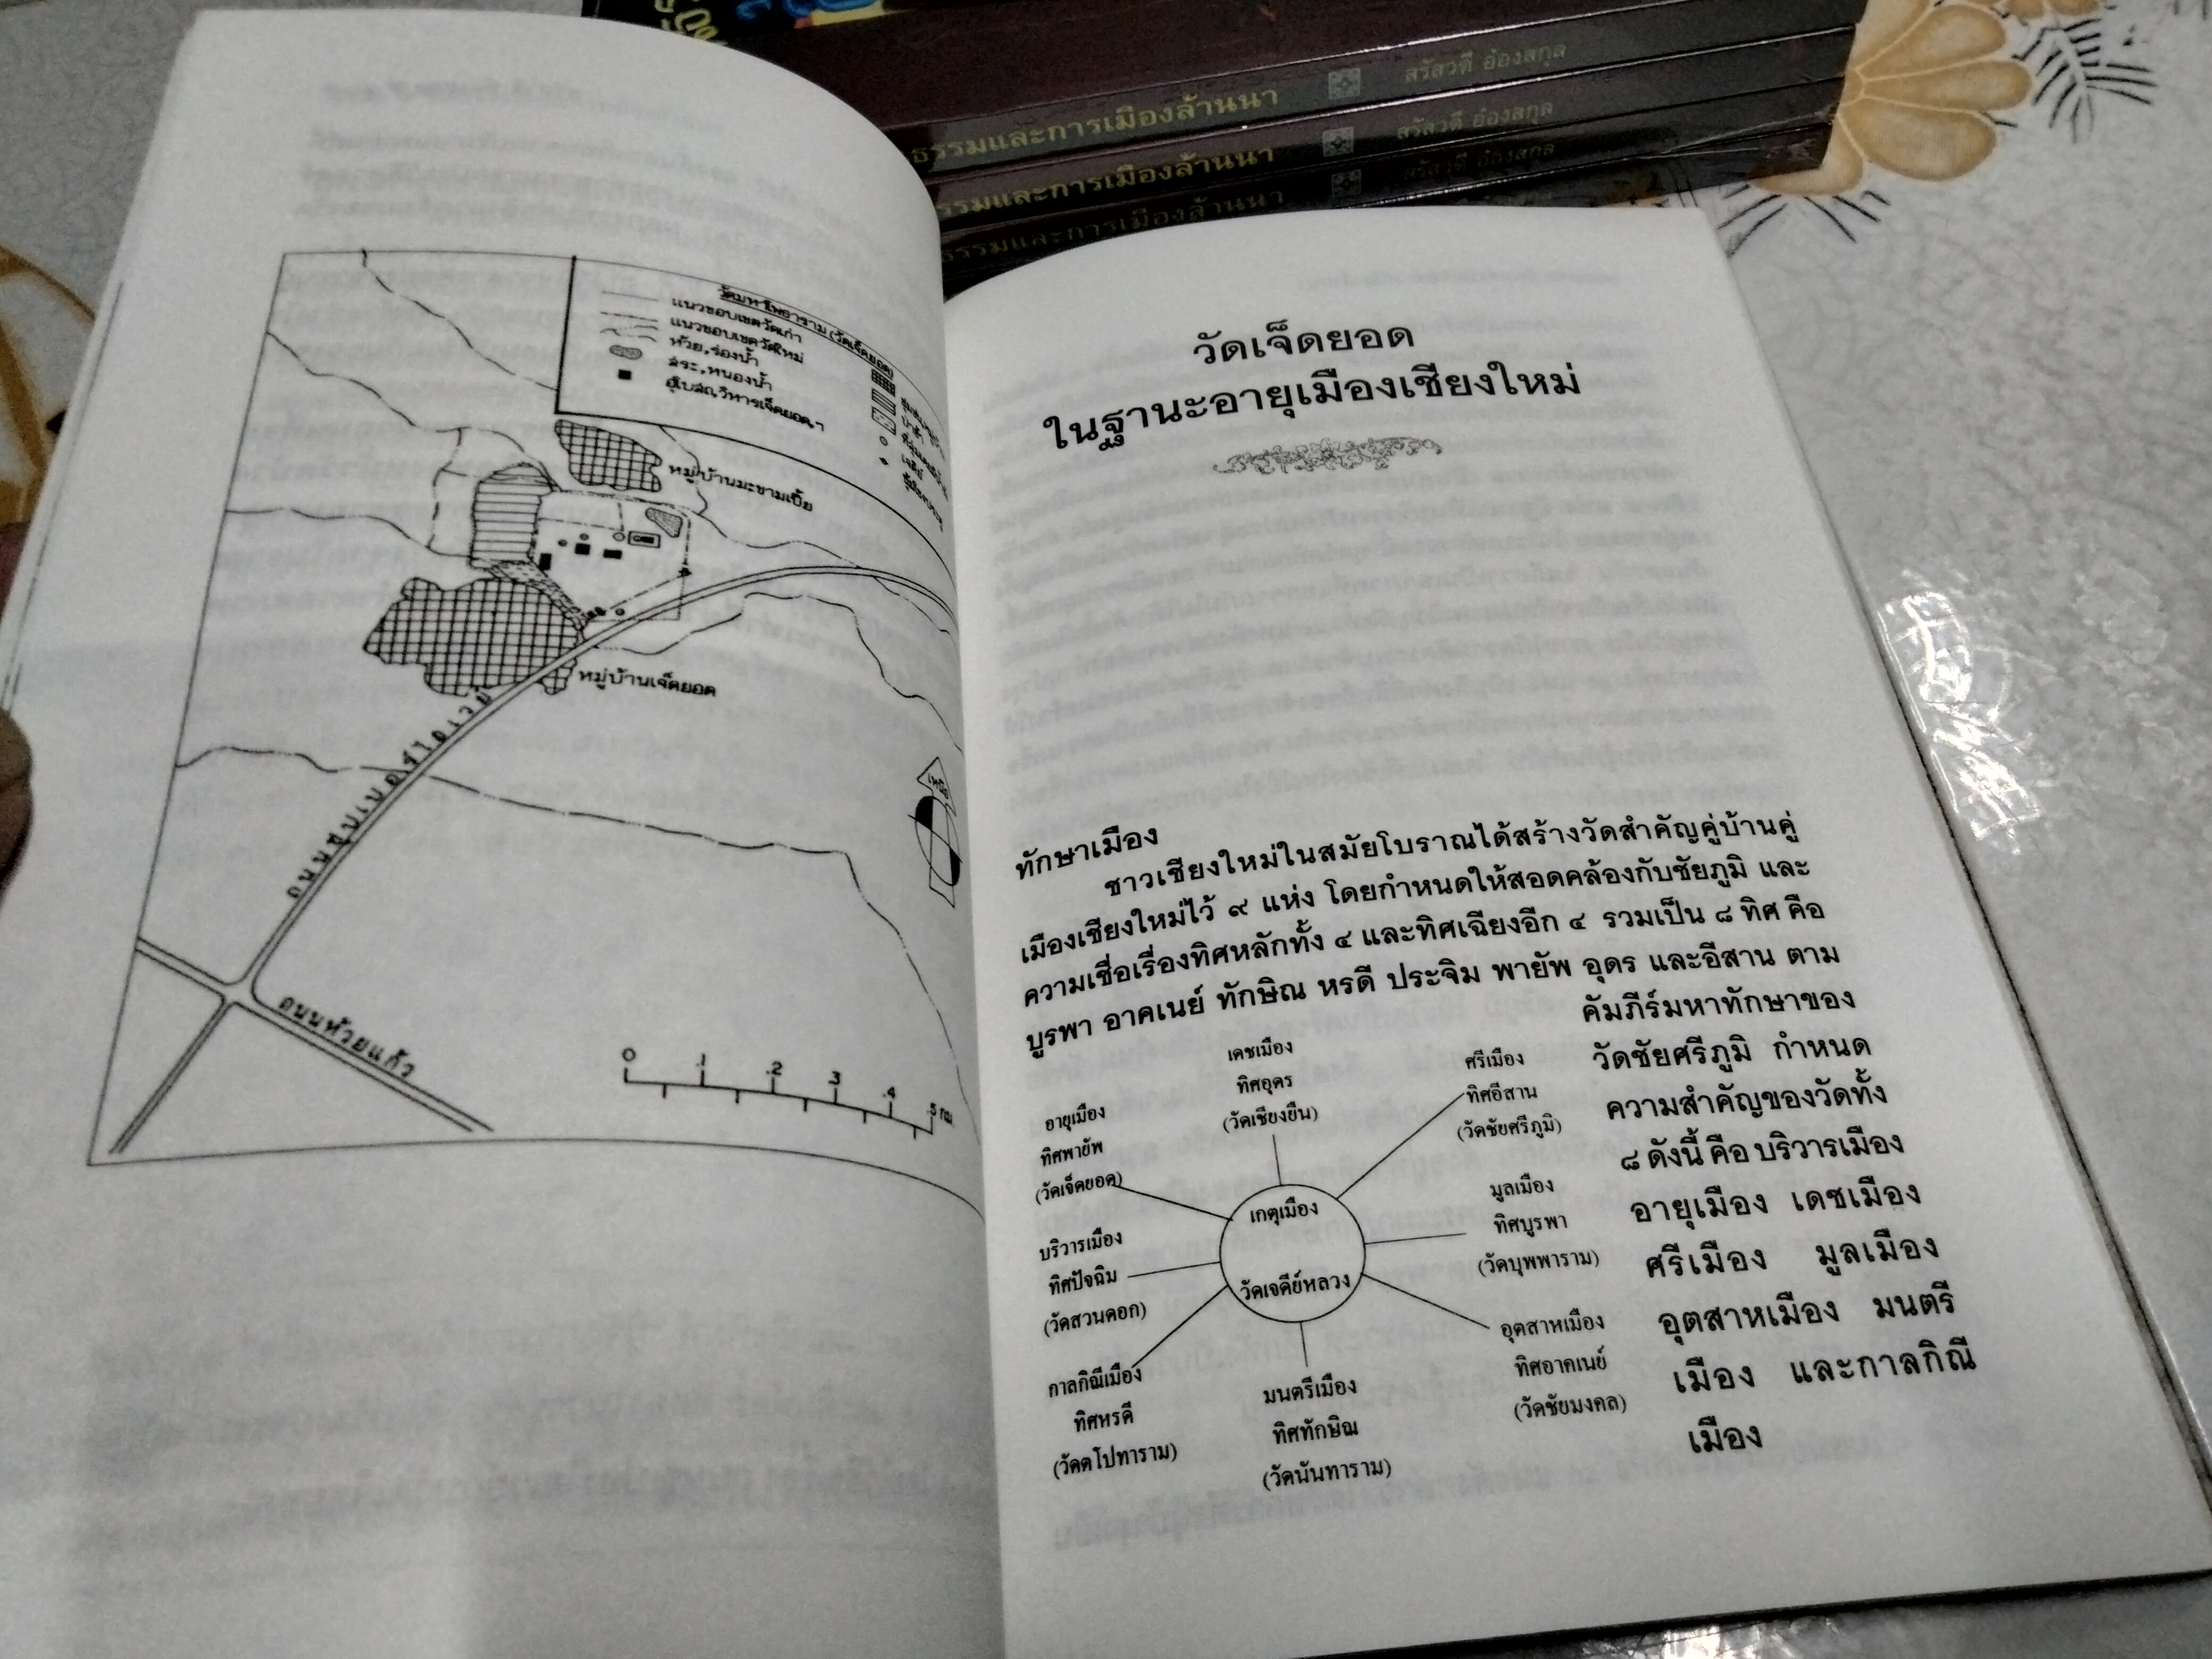 ธรรมและการเมืองล้านนา สรัสวดี อ๋องสกุล
ธรรมและการเมืองล้านนา สรัสวดี อ๋องสกุล
ธรรมและการเมืองล้านนา สรัสวดี อ๋องสกุล
วัดมหาโพธาราม (วัดเจ็ดยอด)
แนวขอบเขตวัดเก่า
แนวขอบเขตวัดใหม่
ห้วย,ร่องน้ำ
สระ,หนองน้ำ
อุโบสถ,วิหารเจ็ดยอด,ฯ
ป่าช้า
เจดีย์
หมู่บ้านมะขามเปี้ย
หมู่บ้านเจ็ดยอด
ถนนซุบเปอร์ไฮเวย์
ถนนห้วยแก้ว
เหนือ
0 .1 .2 .3 .4 .5 กม
วัดเจ็ดยอด
ในฐานะอายุเมืองเชียงใหม่
ทักษาเมือง
ชาวเชียงใหม่ในสมัยโบราณได้สร้างวัดสำคัญคู่บ้านคู่
เมืองเชียงใหม่ไว้ ๙ แห่ง โดยกำหนดให้สอดคล้องกับชัยภูมิ และ
ความเชื่อเรื่องทิศหลักทั้ง ๔ และทิศเฉียงอีก ๔ รวมเป็น ๘ ทิศ คือ
บูรพา อาคเนย์ ทักษิณ หรดี ประจิม พายัพ อุดร และอีสาน ตาม
คัมภีร์มหาทักษาของ
วัดชัยศรีภูมิ กำหนด
ความสำคัญของวัดทั้ง
๘ ดังนี้ คือ บริวารเมือง
อายุเมือง เดชเมือง
ศรีเมือง มูลเมือง
อุตสาหเมือง มนตรี
เมือง และกาลกิณี
เมือง
เดชเมือง
ทิศอุดร
(วัดเชียงยืน)
ศรีเมือง
ทิศอีสาน
(วัดชัยศรีภูมิ)
อายุเมือง
ทิศพายัพ
(วัดเจ็ดยอด)
มูลเมือง
ทิศบูรพา
(วัดบุพพาราม)
เกตุเมือง
วัดเจดีย์หลวง
บริวารเมือง
ทิศปัจฉิม
(วัดสวนดอก)
อุตสาหเมือง
ทิศอาคเนย์
(วัดชัยมงคล)
กาลกิณีเมือง
ทิศหรดี
(วัดตโปทาราม)
มนตรีเมือง
ทิศทักษิณ
(วัดนันทาราม)